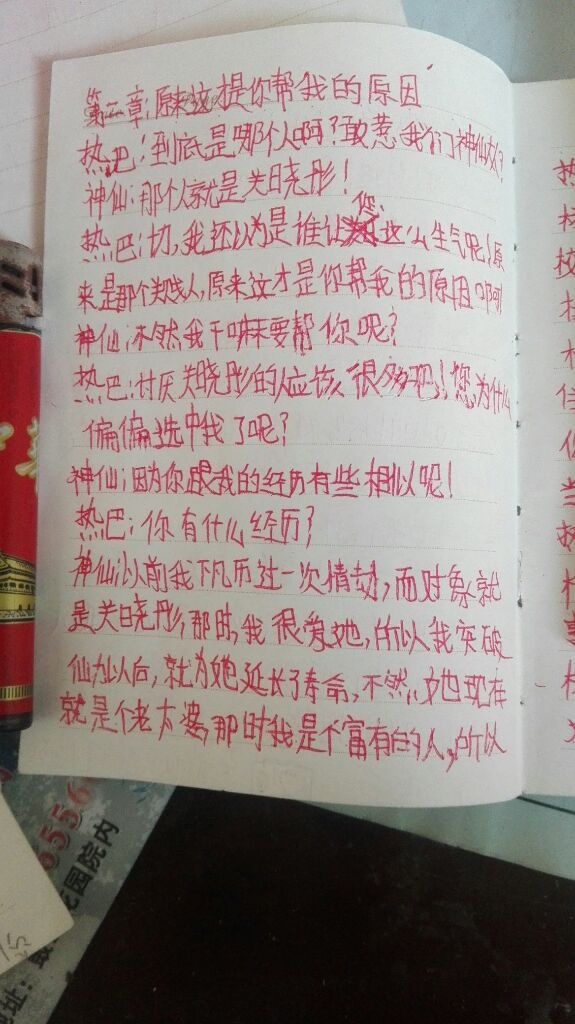 第二章:原来这提你帮我的原因
热巴:到底是哪个人啊?敢惹我们神仙大?
神仙:那个人就是关晓彤!
您
热巴:切,我还以为是谁让这么生气呢!原
来是那个贱人,原来这才是你帮我的原因啊
神仙:不然我干嘛要帮你呢?
热巴:讨厌关晓彤的人应该很多吧!您为什么
偏偏选中我了呢?
神仙:因为你跟我的经历有些相似呢!
热巴:你有什么经历?
神仙:以前我下凡历过一次情劫,而对象就
是关晓彤,那时,我很爱她,所以我突破
仙力以后,就为她延长了寿命,不然,她现在
就是个老太婆,那时我是个富有的人,所以
热
校
当
热
事
6556
花园院内
地址: